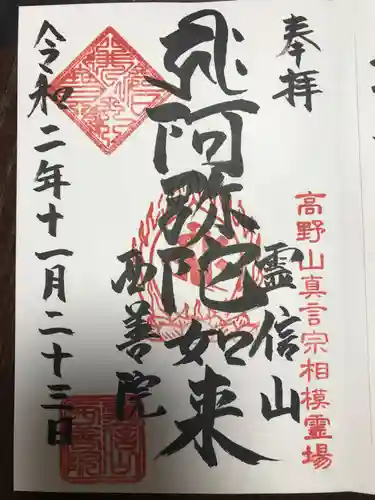 奉拝
高野山真言宗相模霊場
霊信山
阿弥陀如来
西善院
令和二年十一月二十三日